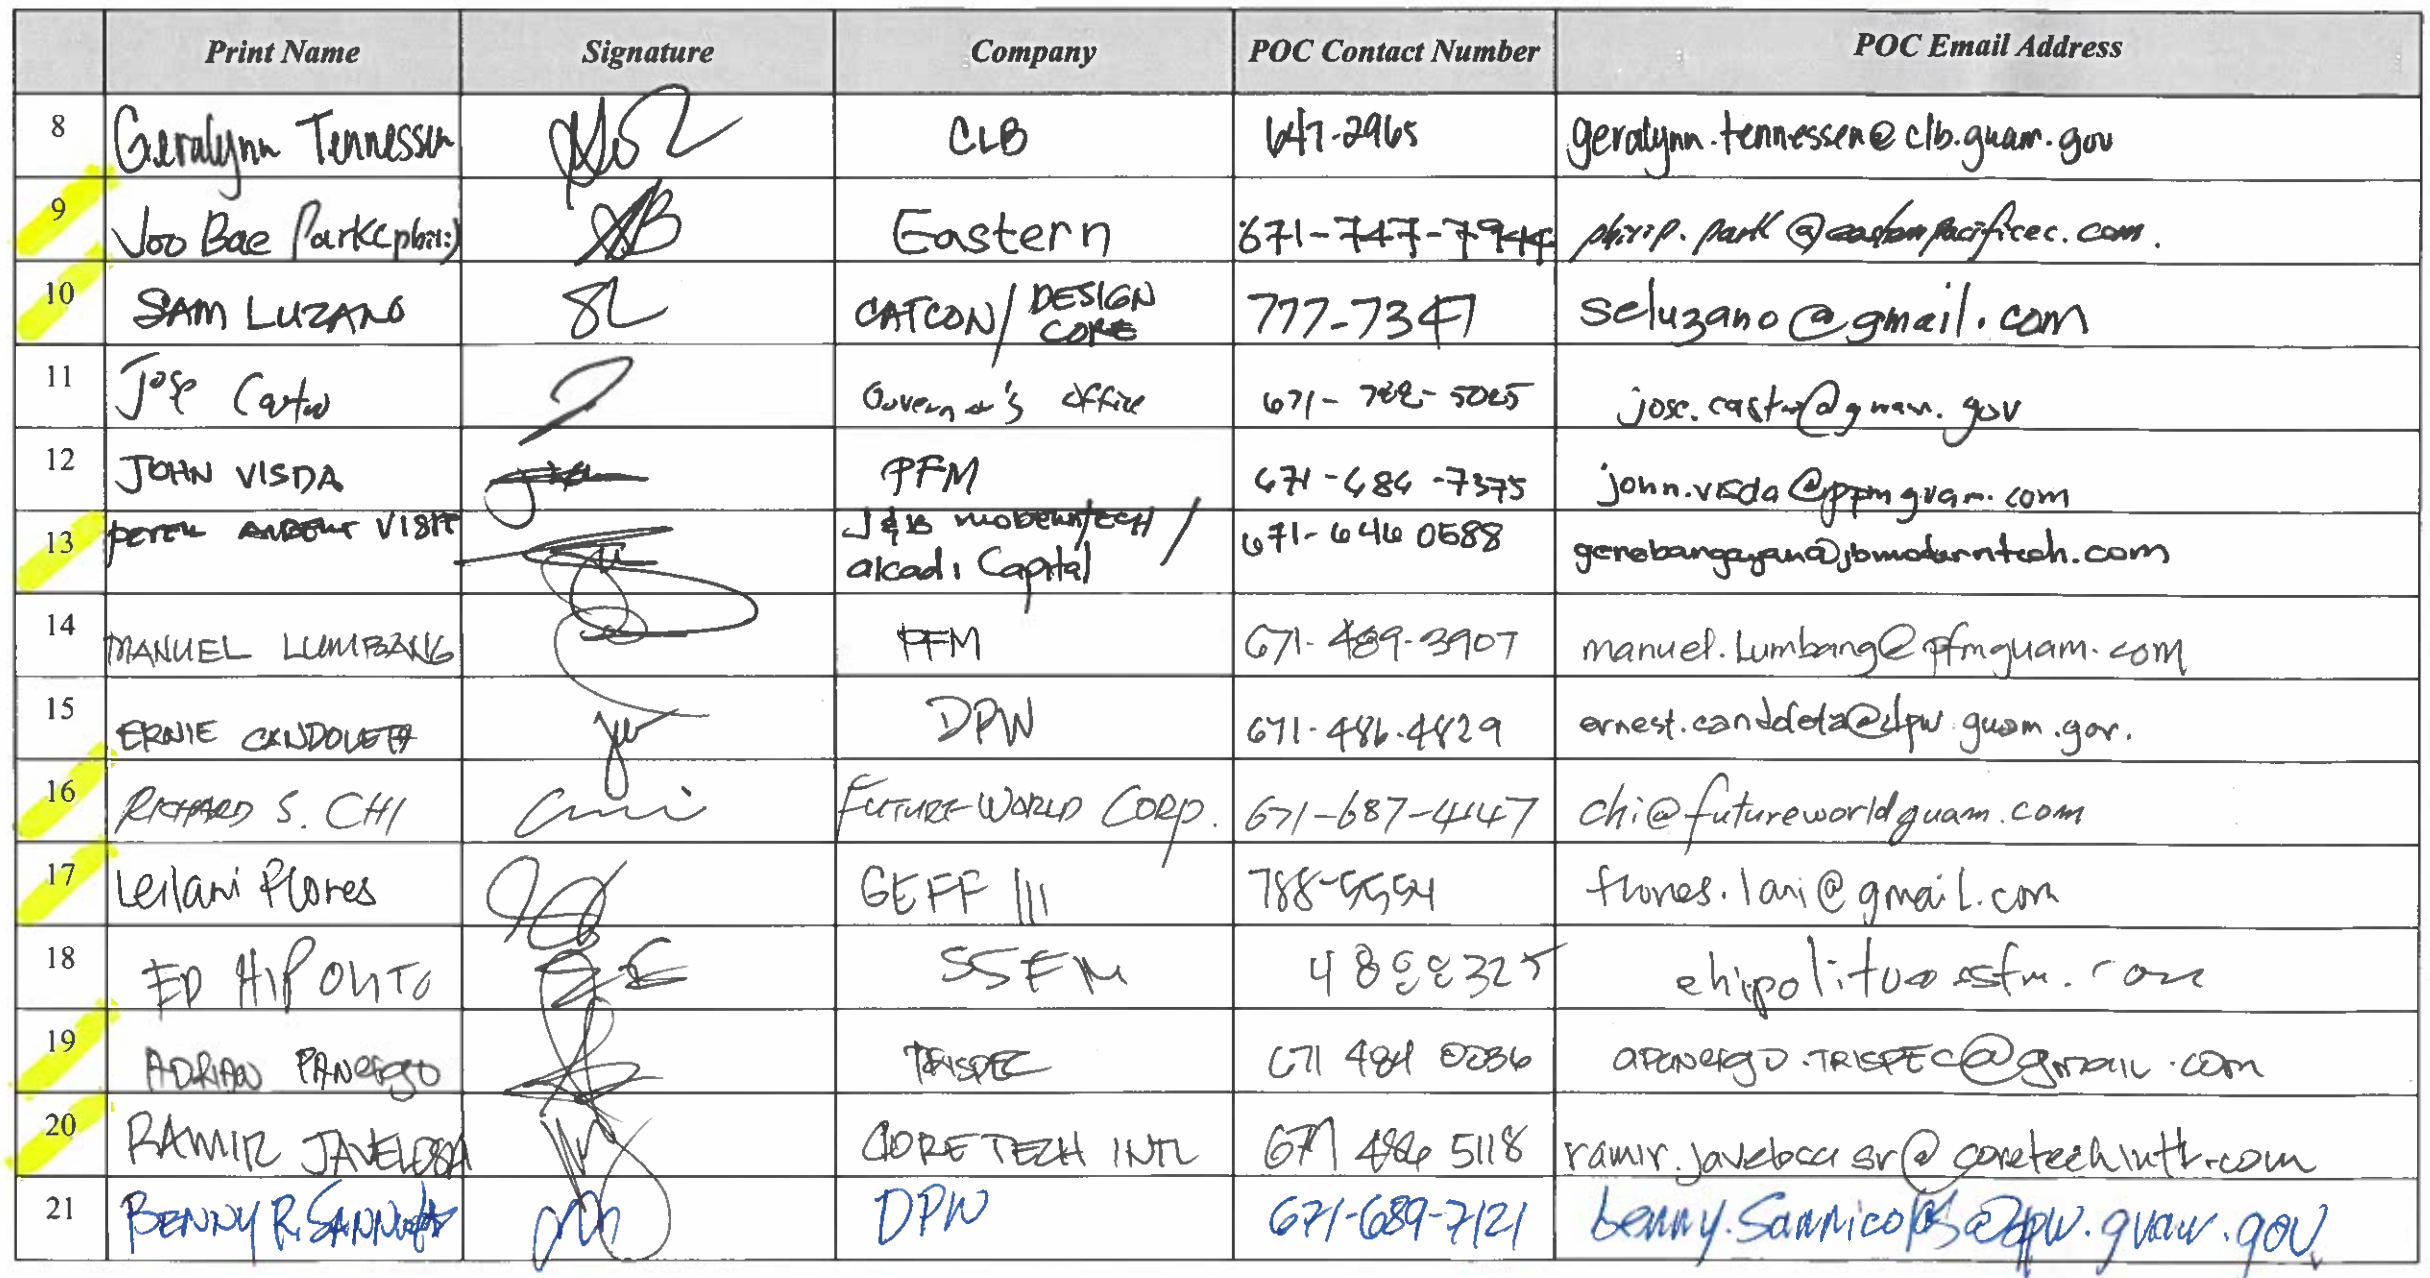 Print Name Signature Company POC Contact Number POC Email Address
8 Geralynn Tennessen CLB 647-2965 geralynn.tennessen@clb.guam.gov
9 Joo Bae Park 	Eastern 671-747-7944 philip.park@easternpacificec.com.
10 SAM LUZANO SL CATCON/DESIGN CORE 777-7347 seluzano@gmail.com
11 Jose Castro Governor's Office 671-788-5025 jose.castro@guam.gov
12 JOHN VISDA PFM 671-686-7375 john.visda@pfmguam.com
13 VISIT J&B MODERNTECH/ 671-646 0588 genebangayan@jbmoderntech.com
Capital
14 MANUEL LUMBANG PFM 671-489-3907 manuel.lumbang@pfmguam.com
15 ERNIE CANDOLETA DPW 671-486-4829 ernest.candoleta@dpw.guam.gov.
16 RICHARD S. CHI FUTURE WORLD CORP. 671-687-4447 chi@futureworldguam.com
17 Leilani Flores GEFF III 788-5554 flores.lani@gmail.com
18 ED HIPOLITO SSFM 4888325 ehipolito@ssfm.com
19 ADRIAN PANERGO TRISPEC 671 484 0036 apanergo.TRISPEC@gmail.com
20 RAMIR JAVELOSA CORE TECH INTL 671 486 5118 ramir.javelosa sr@coretechintl.com
21 BENNY R. SANNICOLAS DPW 671-689-7121 benny.Sannicolas@dpw.guam.gov